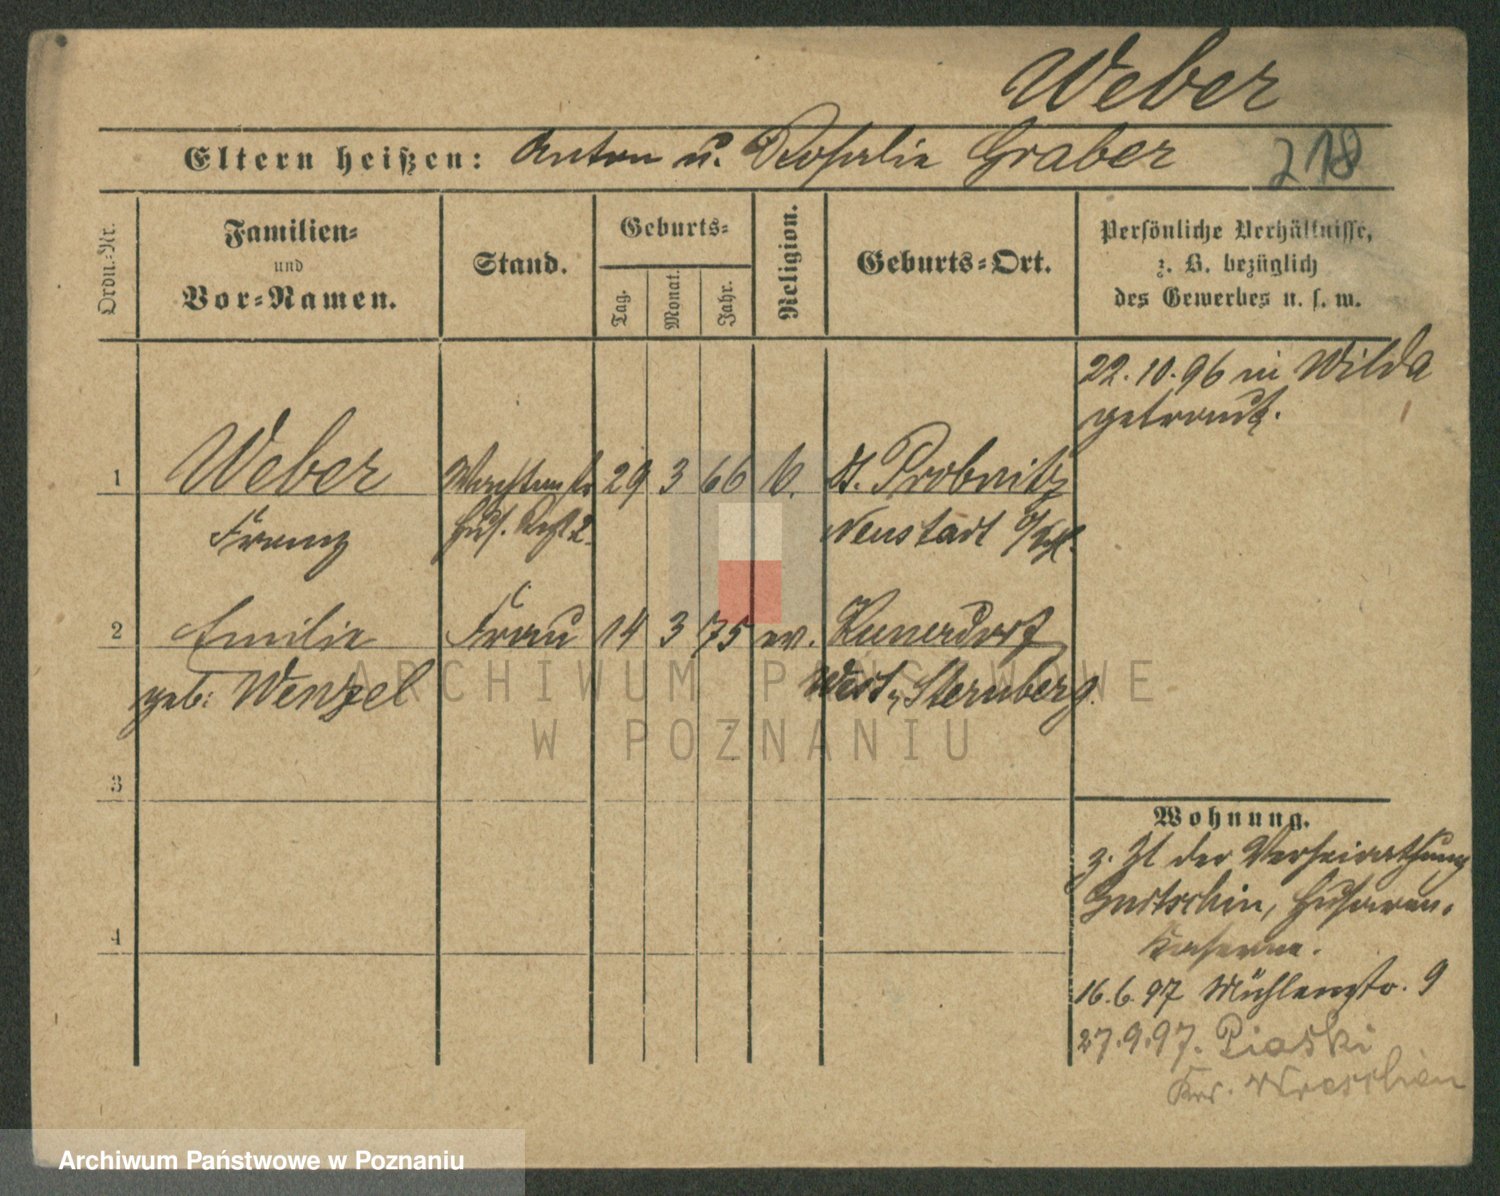 Weber
Eltern heißen: Anton u. Rosalie Graber
218
Ordn.-Nr.
Familien-
und
Vor-Namen.
Stand.
Geburts-
Tag.
Monat.
Jahr.
Religion.
Geburts-Ort.
Persönliche Verhältnisse,
z. B. bezüglich
des Gewerbes u. s. w.
22.10.96 in Wilda
getraut.
1 Weber 29 3 66 k. Dt. Probnitz
Franz Hus. Rgt 2 Neustadt O/Schl.
2 Emilie Frau 14 3 75 ev. Kunersdorf
geb. Wenzel West-Sternberg.
3
4
Wohnung.
z. Zt der Verheirathung
Gurtschin, Husaren-
Kaserne.
16.6.97 Mühlenstr. 9
27.9.97. Piaski
Krs. Wreschen
ARCHIWUM PAŃSTWOWE
W POZNANIU
Archiwum Państwowe w Poznaniu